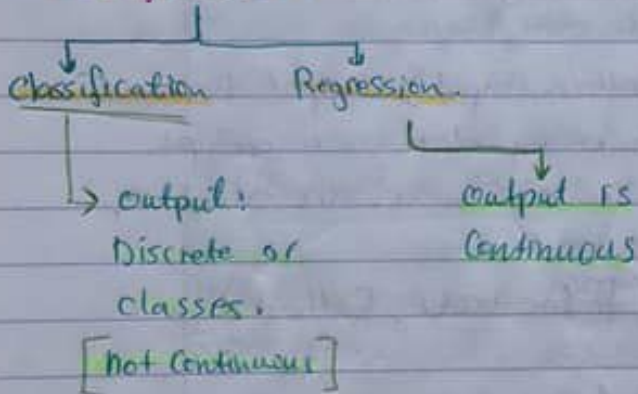 Classification Regression.
Output:
Discrete or
classes.
[not Continuous]
Output is
Continuous